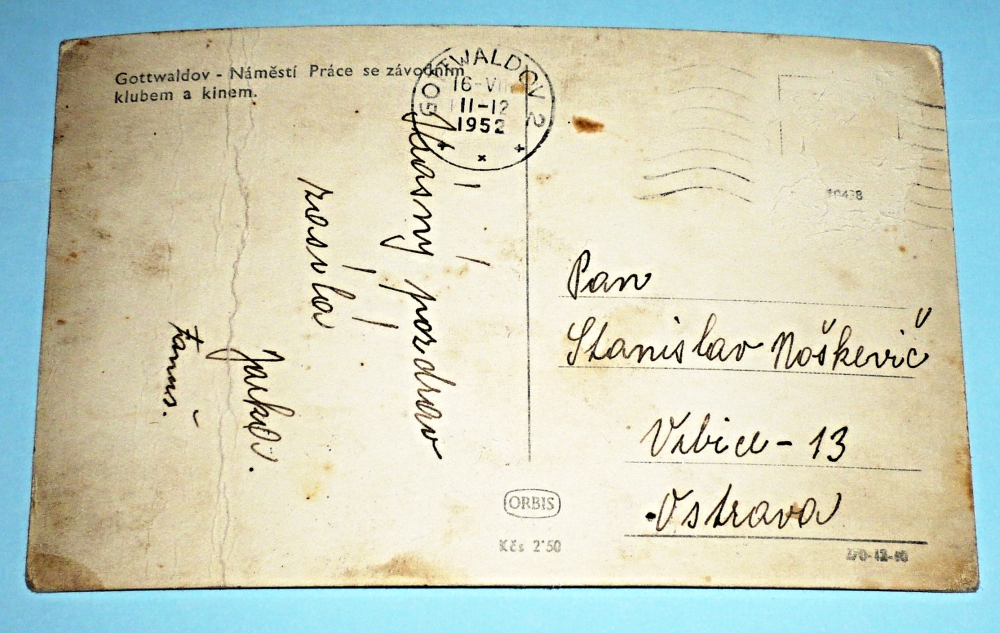 Gottwaldov - Náměstí Práce se závodním
klubem a kinem.
GOTTWALDOV 2
16-VII
11-12
1952
Krásný pozdrav
zasílá
Jarka.
Pan
Stanislav Noškevič
Vrbice - 13
Ostrava
ORBIS
Kčs 2·50